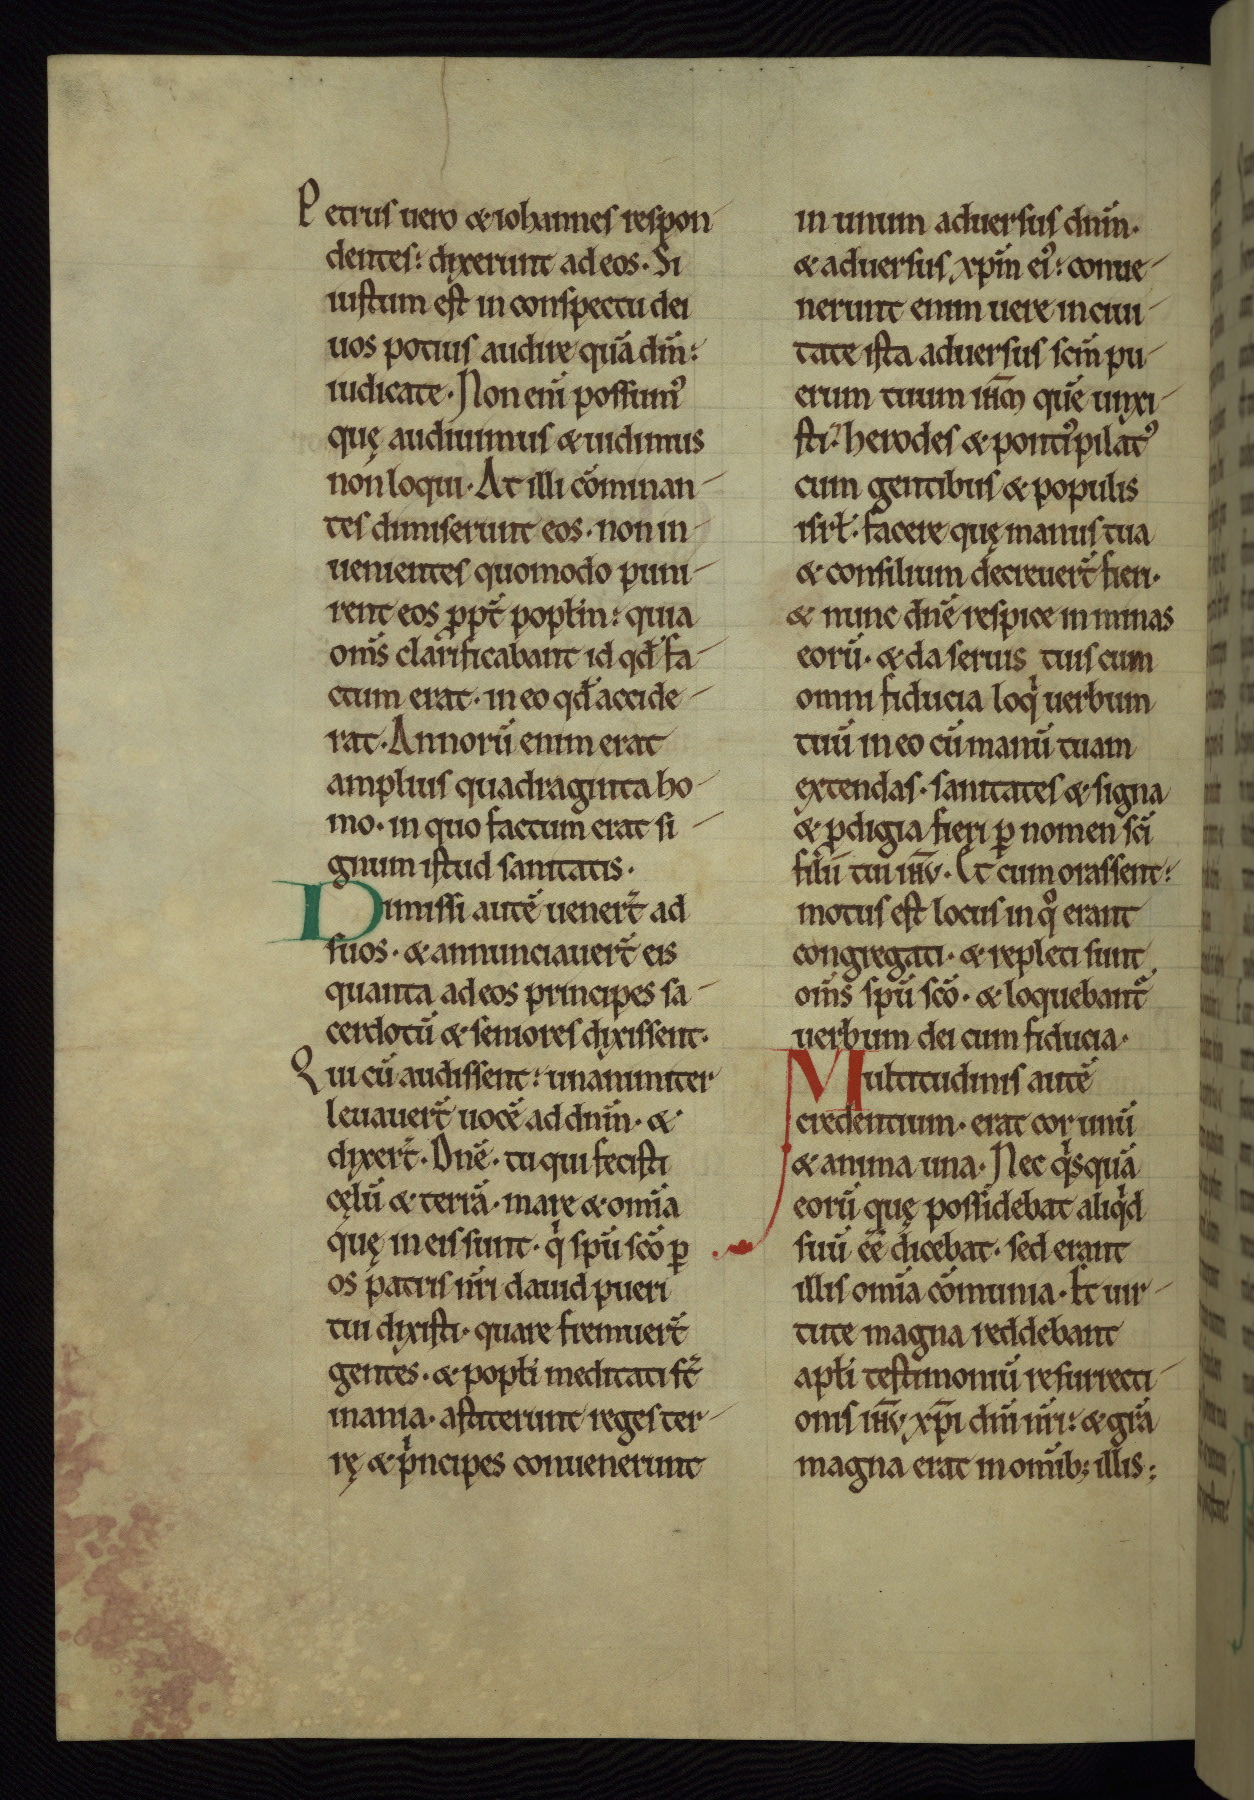 Petrus uero & iohannes respon
dentes: dixerunt ad eos. Si
iustum est in conspectu dei
uos potius audire quā dm̄:
iudicate. Non eni̅ possumꝰ
quę audiuimus & uidimus
non loqui. At illi cōminan
tes dimiserunt eos. non in
uenientes quomodo puni
rent eos ꝓpt̄ popłm: quia
om̄s clarificabant id qđ fa
ctum erat. in eo qđ accide
rat. Annorū enim erat
amplius quadraginta ho
mo. in quo factum erat si
gnum istud sanitatis.
Dimissi autē uenert̄ ad
suos. & annunciauert̄ eis
quanta ad eos principes sa
cerdotū & seniores dixissent.
Qui cū audissent: unanimiter
leuauert̄ uocē ad dnm̄. &
dixert̄. Dnē. tu qui fecisti
cęlū & terrā. mare & omīa
quę in eis sunt. qͥ spū scō ꝑ
os patris nr̄i dauid pueri
tui dixisti. quare fremuert̄
gentes. & popłi meditati st̄
inania. astiterunt reges ter
rę & pͥncipes conuenerunt
in unum aduersus dnm̄.
& aduersus xpm̄ eiꝰ: conue
nerunt enim uere in ciui
tate ista aduersus scm̄ pu
erum tuum ih̅m quē unxi
sti: herodes & pontiꝰ pilatꝰ
cum gentibus & populis
isrł. facere quę manus tua
& consilium decreuert̄ fieri.
& nunc dnē respice in minas
eorū. & da seruis tuis cum
omni fiducia loqͥ uerbum
tuū in eo cū manū tuam
extendas. sanitates & signa
& ꝓdigia fieri ꝑ nomen scī
filii tui ih̅u. Et cum orassent:
motus est locus in qͦ erant
congregati. & repleti sunt
om̄s spū scō. & loquebant᷑
uerbum dei cum fiducia.
Multitudinis autē
credentium. erat cor unū
& anima una. Nec qͥsquā
eorū quę possidebat aliqͥd
suū eē dicebat. sed erant
illis omīa cōmunia. Et uir
tute magna reddebant
apłi testimoniū resurrecti
onis ih̅u xp̅i dn̄i nr̄i: & gr̄a
magna erat in omīb; illis;